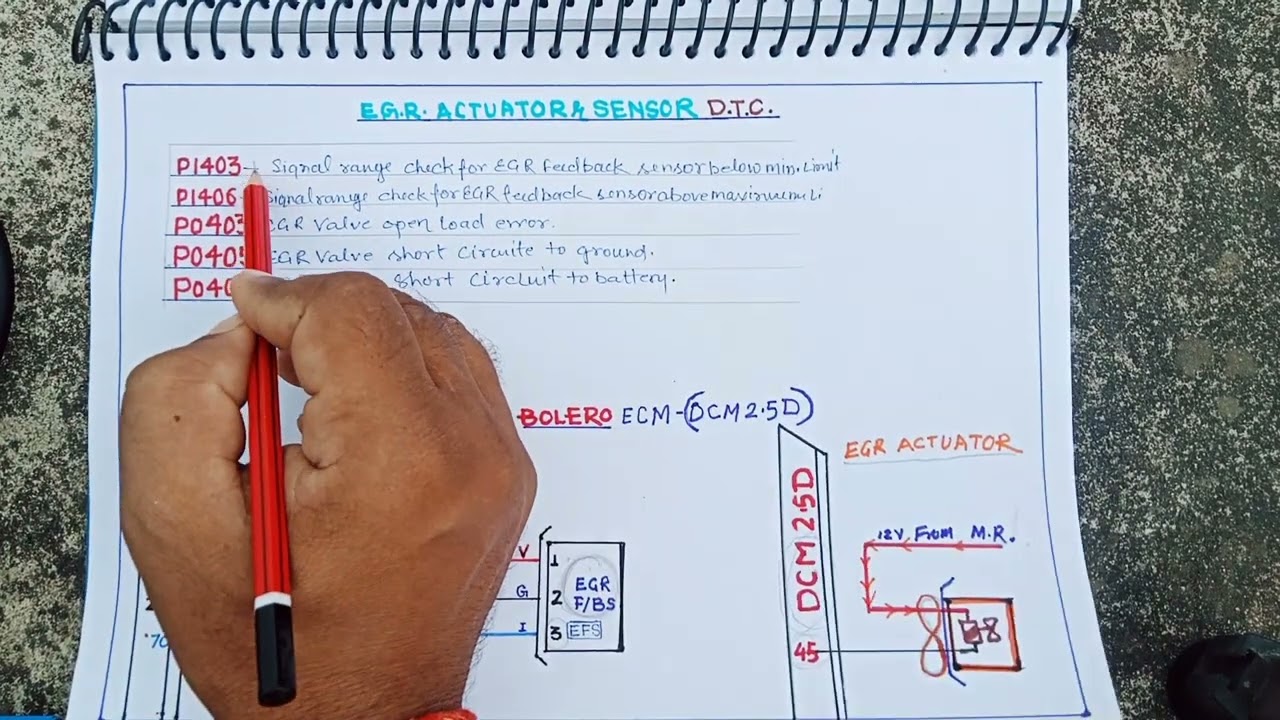 E.G.R. ACTUATOR & SENSOR D.T.C.
P1403 - Signal range check for EGR feedback sensor below min. Limit
P1406 Signal range check for EGR feedback sensor above maximum Li
P0403 EGR Valve open load error.
P0405 EGR Valve short Circuite to ground.
P040 short Circiuit to battery.
BOLERO ECM-(DCM 2.5D)
EGR ACTUATOR
DCM 2.5D
12V From M.R.
V 1
G 2
I 3
EGR
F/BS
EFS
8
45
70